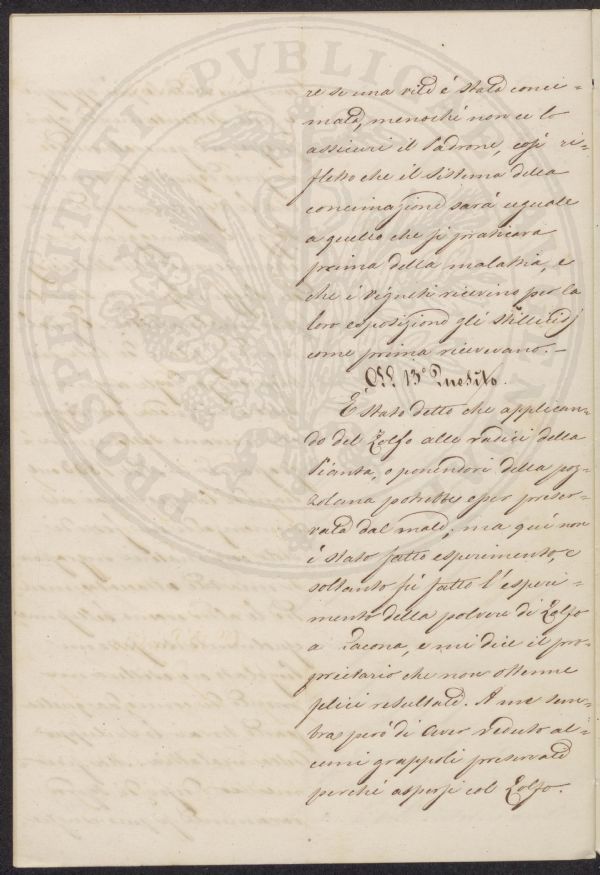 re se una vite é stata conci=
mata, menochè non ce lo
assicuri il Padrone, così ri=
fletto che il sistema della
concimazione sarà uguale
a quello che si praticava
prima della malattia, e
che i Vigneti ricevino per la
loro esposizione gli stillicidj
come prima ricevevano. —
Al 13° Quesito.
E stato detto che applican=
do del Zolfo alle radici della
Pianta, o ponendovi della poz=
zolana potrebbe esser preser=
vata dal male; ma quì non
é stato fatto esperimento, e
soltanto fù fatto l'esperi=
mento della polvere di Zolfo
a Lacona, e mi dice il pro=
prietario che non ottenne
felici resultati. A me sem=
bra però di aver veduto al=
cuni grappoli preservati
perchè aspersi col Zolfo.
PROSPERITATI PUBLICAE